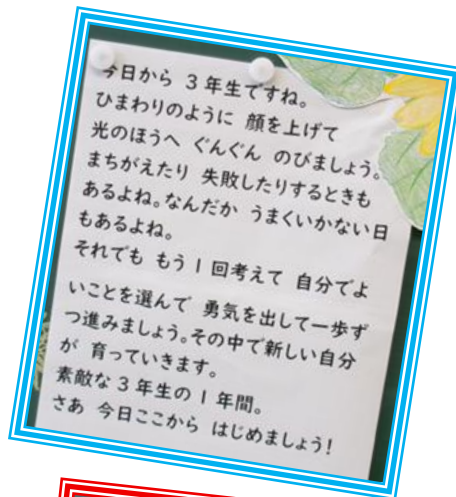 今日から 3年生ですね。
ひまわりのように 顔を上げて
光のほうへ ぐんぐん のびましょう。
まちがえたり 失敗したりするときも
あるよね。なんだか うまくいかない日
もあるよね。
それでも もう1回考えて 自分でよ
いことを選んで 勇気を出して一歩ず
つ進みましょう。その中で新しい自分
が 育っていきます。
素敵な3年生の1年間。
さあ 今日ここから はじめましょう!